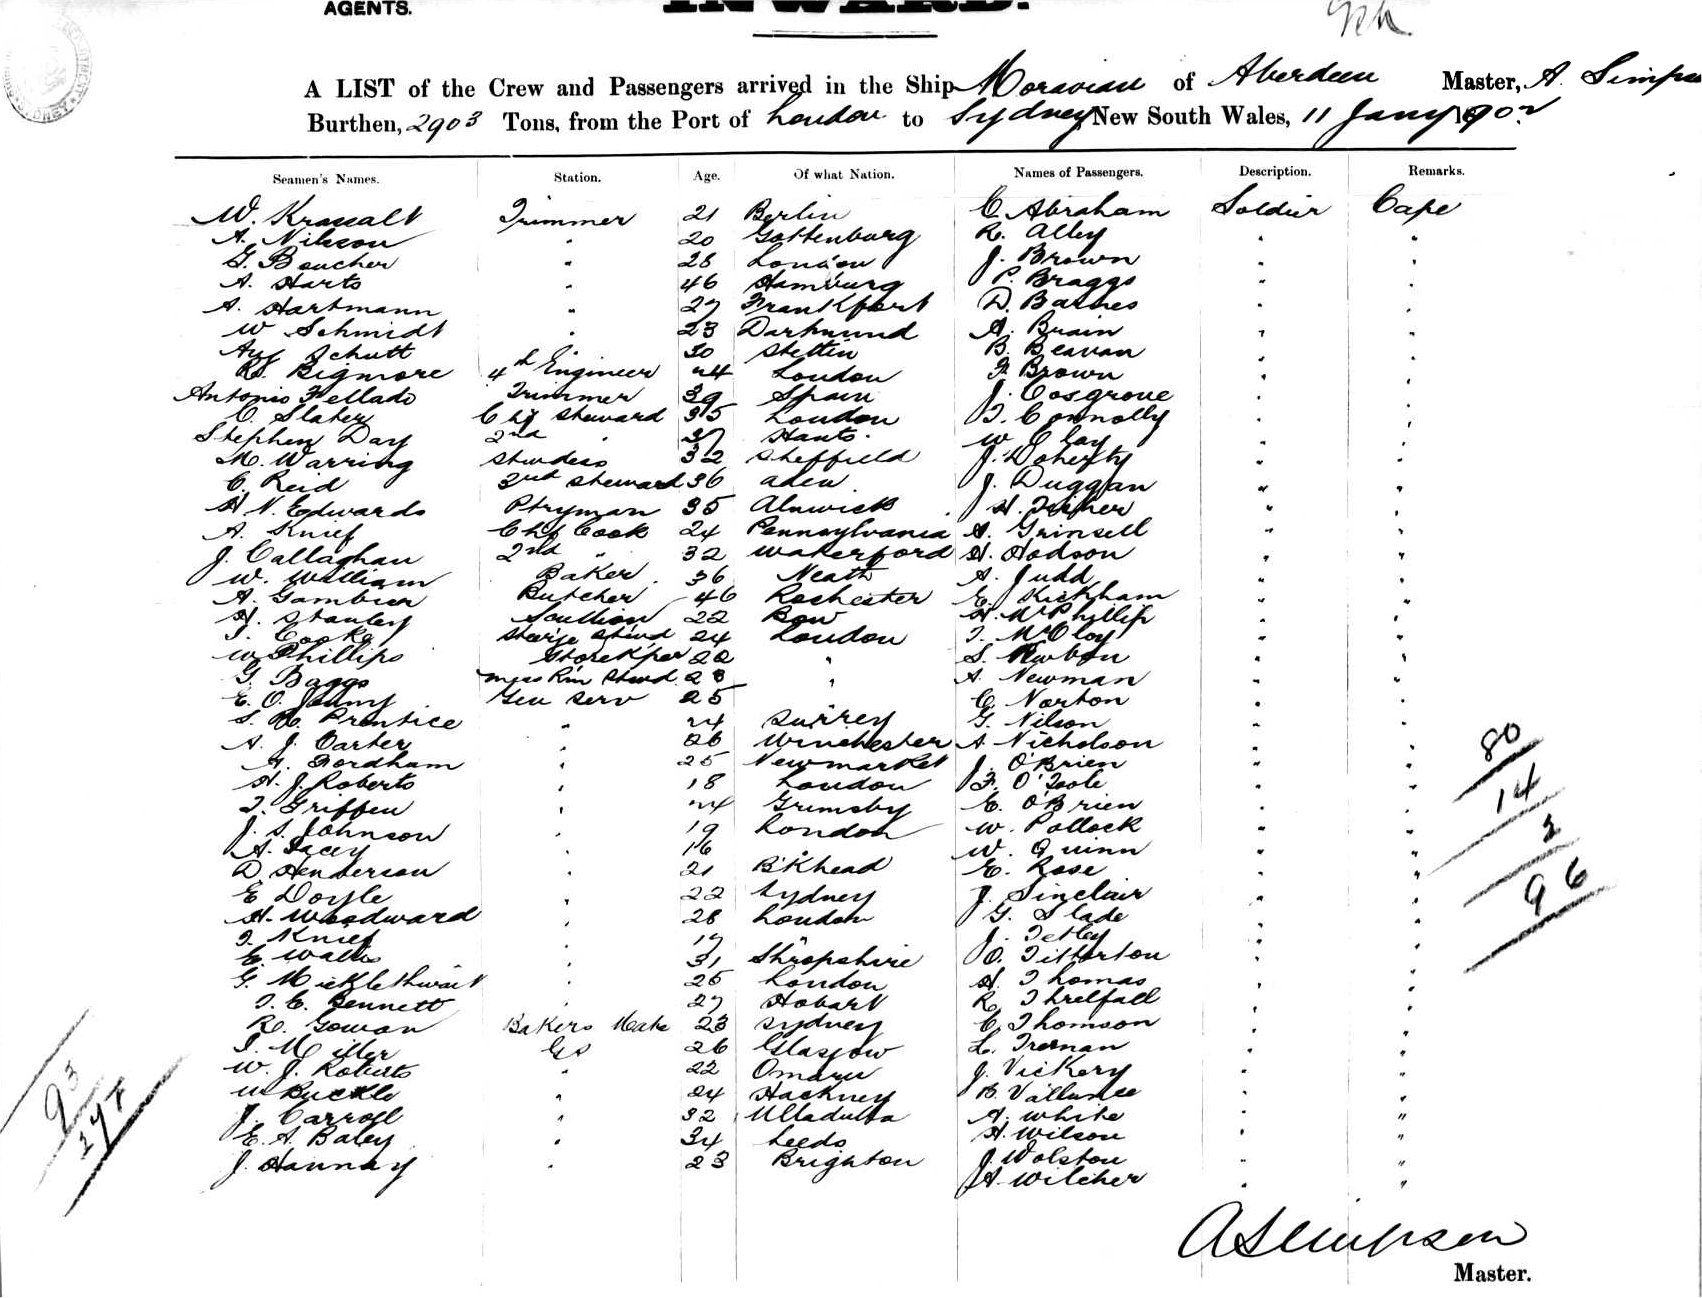 AGENTS.
INWARD.
A LIST of the Crew and Passengers arrived in the Ship Moravian of Aberdeen Master, A. Simps
Burthen, 2903 Tons, from the Port of London to Sydney New South Wales, 11 Jany 1902
Seamen's Names. Station. Age. Of what Nation. Names of Passengers. Description. Remarks.
W. Krassalt Trimmer 21 Berlin C. Abraham Soldier Cape
A. Nilsson " 20 Gottenburg R. Alley " "
G. Boucher " 28 London J. Brown " "
A. Harts " 46 Hamburg P. Braggs " "
A. Hartmann " 27 Frankfort D. Barnes " "
W Schmidt " 23 Dortmund A. Brain " "
Aug Schutt 30 Stettin B. Beavan " "
R. Bigmore 4th Engineer 24 London F. Brown " "
Antonio Fellado Trimmer 39 Spain J. Cosgrove " "
C. Slater Chf Steward 35 London T. Connolly " "
Stephen Day 2nd " 37 Hants. W Clay " "
M. Warring Stwdess 32 Sheffield J. Doherty " "
C. Reid 3rd Steward 36 Aden J. Duggan " "
H N. Edwards Ptryman 35 Alnwick H. " "
A. Knief Chf Cook 24 Pennsylvania A. Grinsell " "
J. Callaghan 2nd " 32 Waterford H. Hodson " "
W. William Baker 36 Neath A. Judd " "
A. Gambier Butcher 46 Rochester E. Kickham " "
H. Stanley Scullion 22 Bow H. McPhillip " "
T. Cooke Stwd 24 London T. McCloy " "
W Phillips Storekper 22 " S. " "
G. Baggs Mess Rm Stwd. 28 " A. Newman " "
E. O. Gen Serv 25 C. Norton " "
S. R. Prentice " 24 Surrey G. Nilson " "
A. J. Carter " 26 Winchester A Nicholson " "
G. Fordham " 25 Newmarket J. O'Brien " "
H. J. Roberts " 18 London F. O'Toole " "
T. Griffen " 24 Grimsby E. O'Brien " "
J. S. Johnson " 19 London W. Pollock " "
A. Lacey " 16 " W. Quinn " "
D Henderson " 21 B'Khead E. Rose " "
E Doyle " 22 Sydney J. Sinclair " "
H. Woodward " 28 London G. Slade " "
T. Knief " 17 " J. Tetley " "
E. Walls " 31 Shropshire C. Titterton " "
G. Micklethwait " 25 London H. Thomas " "
T. C. Bennett " 27 Hobart R. Threlfall " "
R. Gowan Bakers Mate 23 Sydney C. Thomson " "
T. Miller GS 26 Glasgow L. " "
W. J. Roberts " 22 Omaru J. Vickery " "
W Buckle " 24 Hackney B. Vallance " "
J. Carroll " 32 Ulladulla A. White " "
E. A. Baley " 34 Leeds H. Wilson " "
J. Hannay " 23 Brighton J. Wolston " "
A. Wilcher " "
80
14
2
96
93
A Simpson
Master.